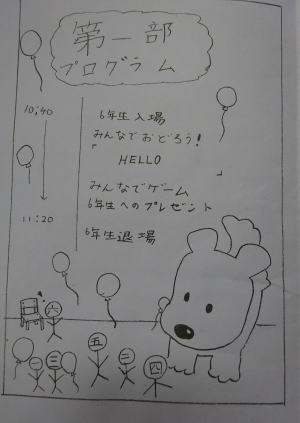 第一部
プログラム
10:40
6年生入場
みんなでおどろう!
「
HELLO
」
みんなでゲーム
6年生へのプレゼント
11:20
6年生退場
六
五
二
四
三